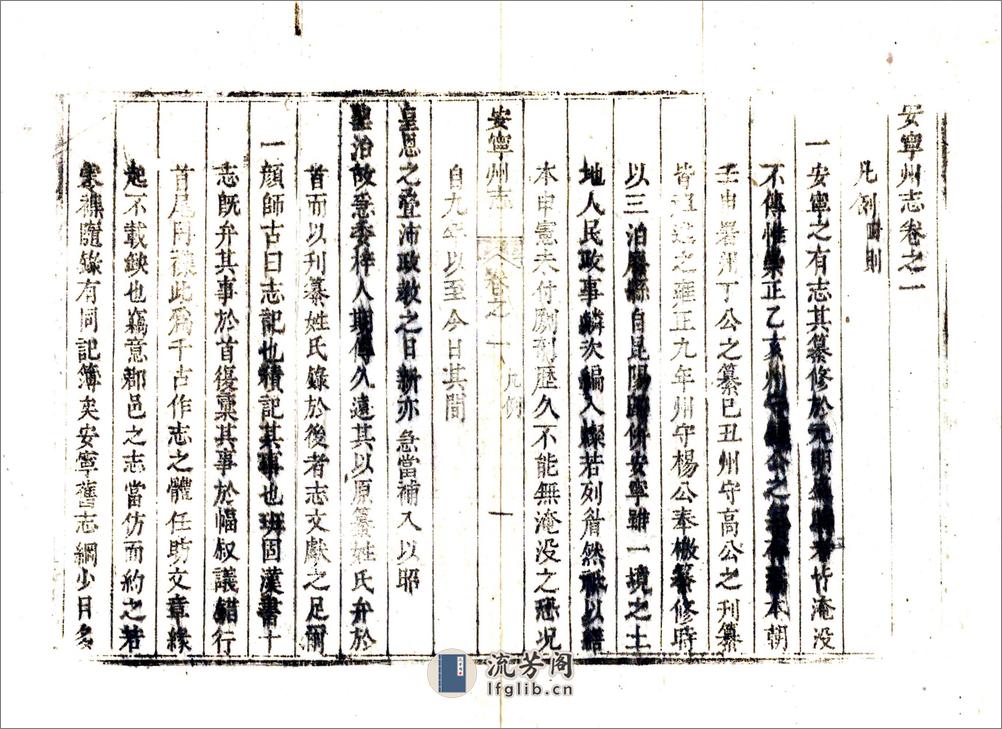 安寧州志卷之一
凡例四則
一安寧之有志其纂修於元明者竹淹没
不傳惟崇正乙亥州守公之本朝
壬申署州丁公之纂已丑州守高公之刊纂
皆迨之雍正九年州守楊公奉檄纂修時
以三泊廢縣自昆陽歸併安寧雖一境之土
地人民政事鱗次編入燦若列眉然祗以繕
本申憲未付剞劂歷久不能無淹没之恐况
自九年以至今日其間
安寧州志 卷之一 凡例 一
皇恩之疊沛政教之日新亦急當補入以昭
聖治故急委梓人期傳久遠其以原纂姓氏弁於
首而以刊纂姓氏錄於後者志文獻之足爾
一顔師古曰志記也積記其事也班固漢書十
志旣弁其事於首復彙其事於幅叙議錯行
首尾井此爲千古作志之體任昉文章緣
起不載缺也竊意郡邑之志當仿而約之若
裳襍隨錄有同記簿矣安寧舊志綱少目多
流芳阁
lfglib.cn